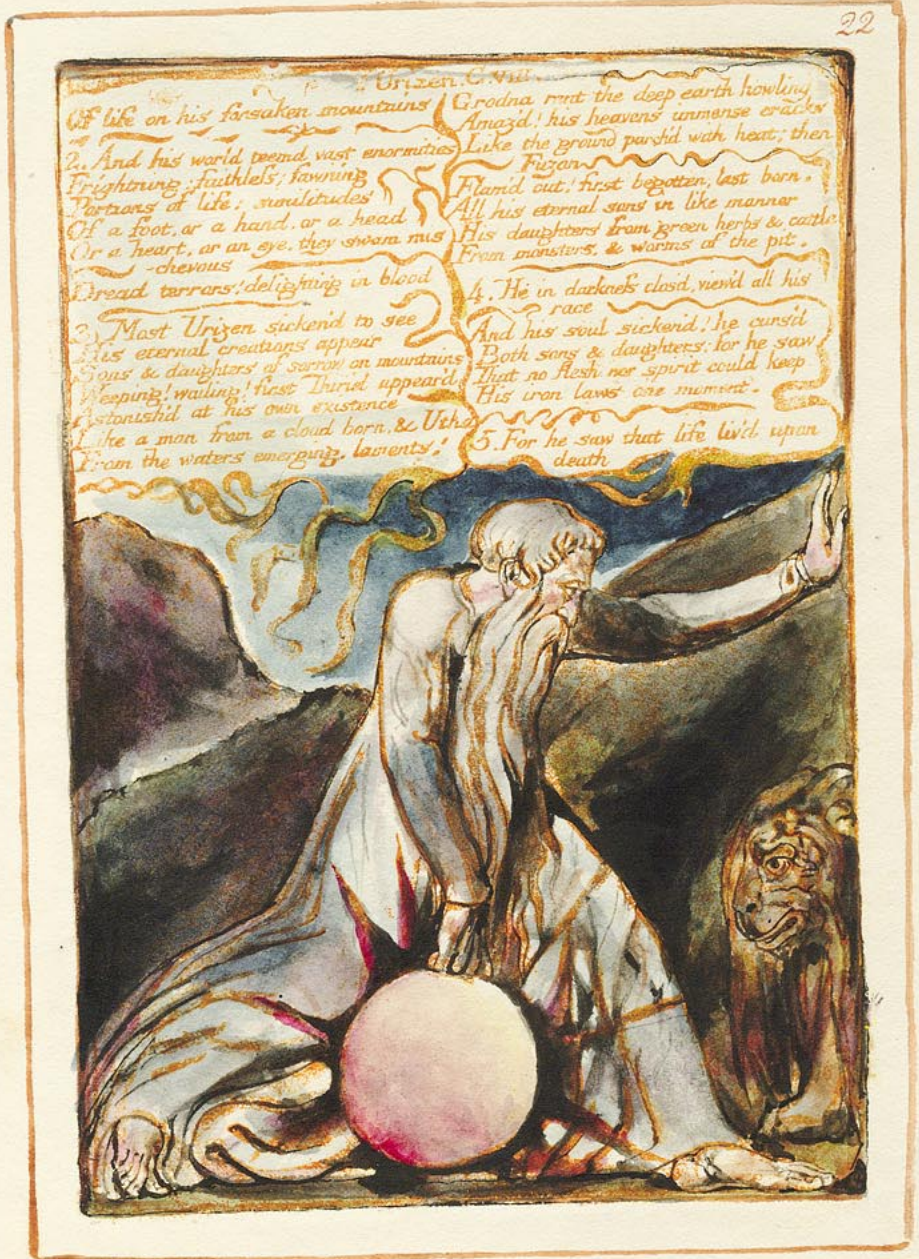 22
Urizen. C. VIII.
Of life on his forsaken mountains
2. And his world teemd vast enormities
Frightning; faithless; fawning
Portions of life; similitudes
Of a foot, or a hand, or a head
Or a heart, or an eye, they swam mis
-chevous
Dread terrors! delighting in blood
3. Most Urizen sicken'd to see
His eternal creations appear
Sons & daughters of sorrow on mountains
Weeping! wailing! first Thiriel appear'd
Astonish'd at his own existence
Like a man from a cloud born, & Utha
From the waters emerging, laments!
Grodna rent the deep earth howling
Amaz'd! his heavens immense cracks
Like the ground parch'd with heat; then
Fuzon
Flam'd out! first begotten, last born.
All his eternal sons in like manner
His daughters from green herbs & cattle
From monsters, & worms of the pit.
4. He in darkness clos'd, view'd all his
race
And his soul sicken'd! he curs'd
Both sons & daughters; for he saw
That no flesh nor spirit could keep
His iron laws one moment.
5. For he saw that life liv'd upon
death